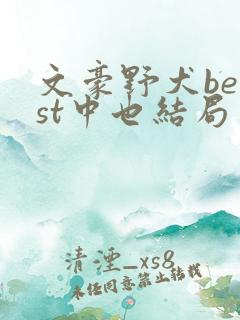 文豪野犬be
st中也結局
清湮_xs8
未经同意禁止转载